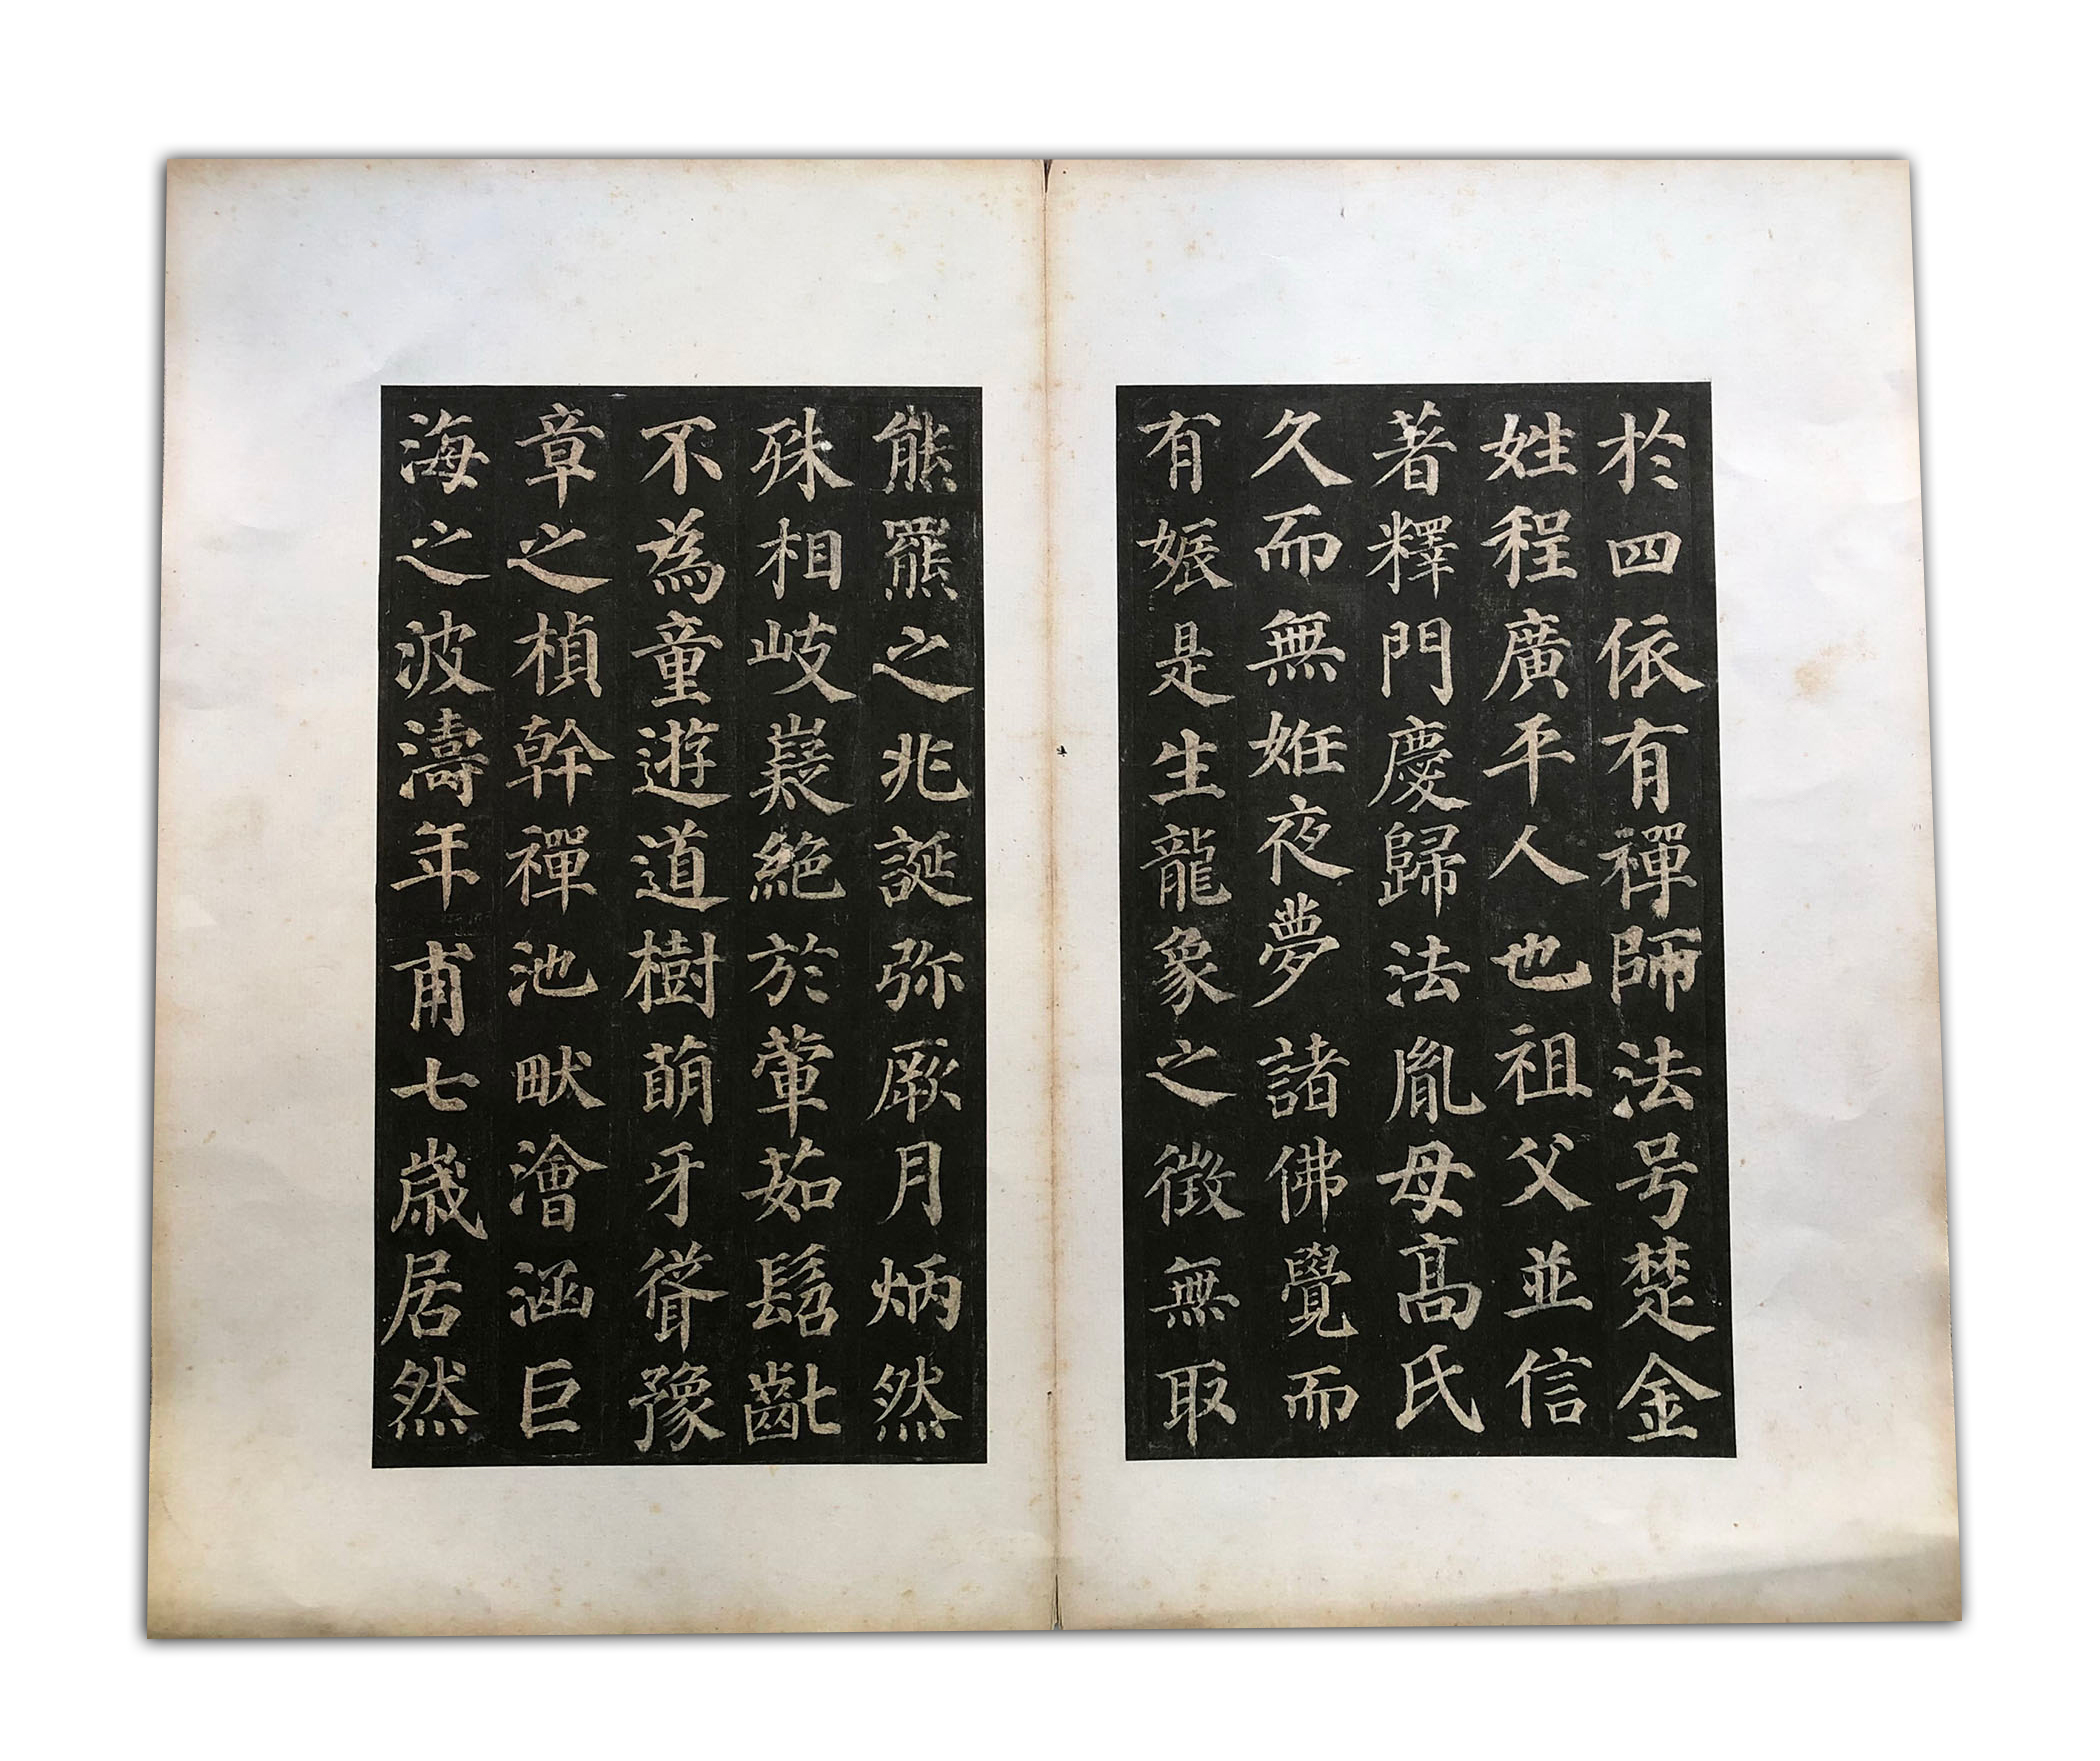 於四依有禪師法号楚金
姓程廣平人也祖父並信
著釋門慶歸法胤母高氏
久而無妊夜夢諸佛覺而
有娠是生龍象之徵無取
熊羆之兆誕弥厥月炳然
殊相岐嶷絕於葷茹髫齔
不為童遊道樹萌牙聳豫
章之楨幹禪池畎澮涵巨
海之波濤年甫七歲居然